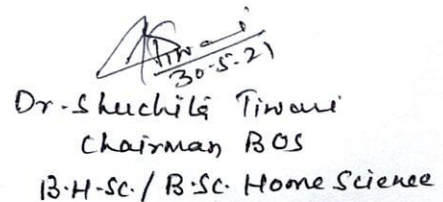 Tiwari
30-5-21
Dr. Shuchita Tiwari
Chairman BOS
B.H.Sc./B.Sc. Home Science